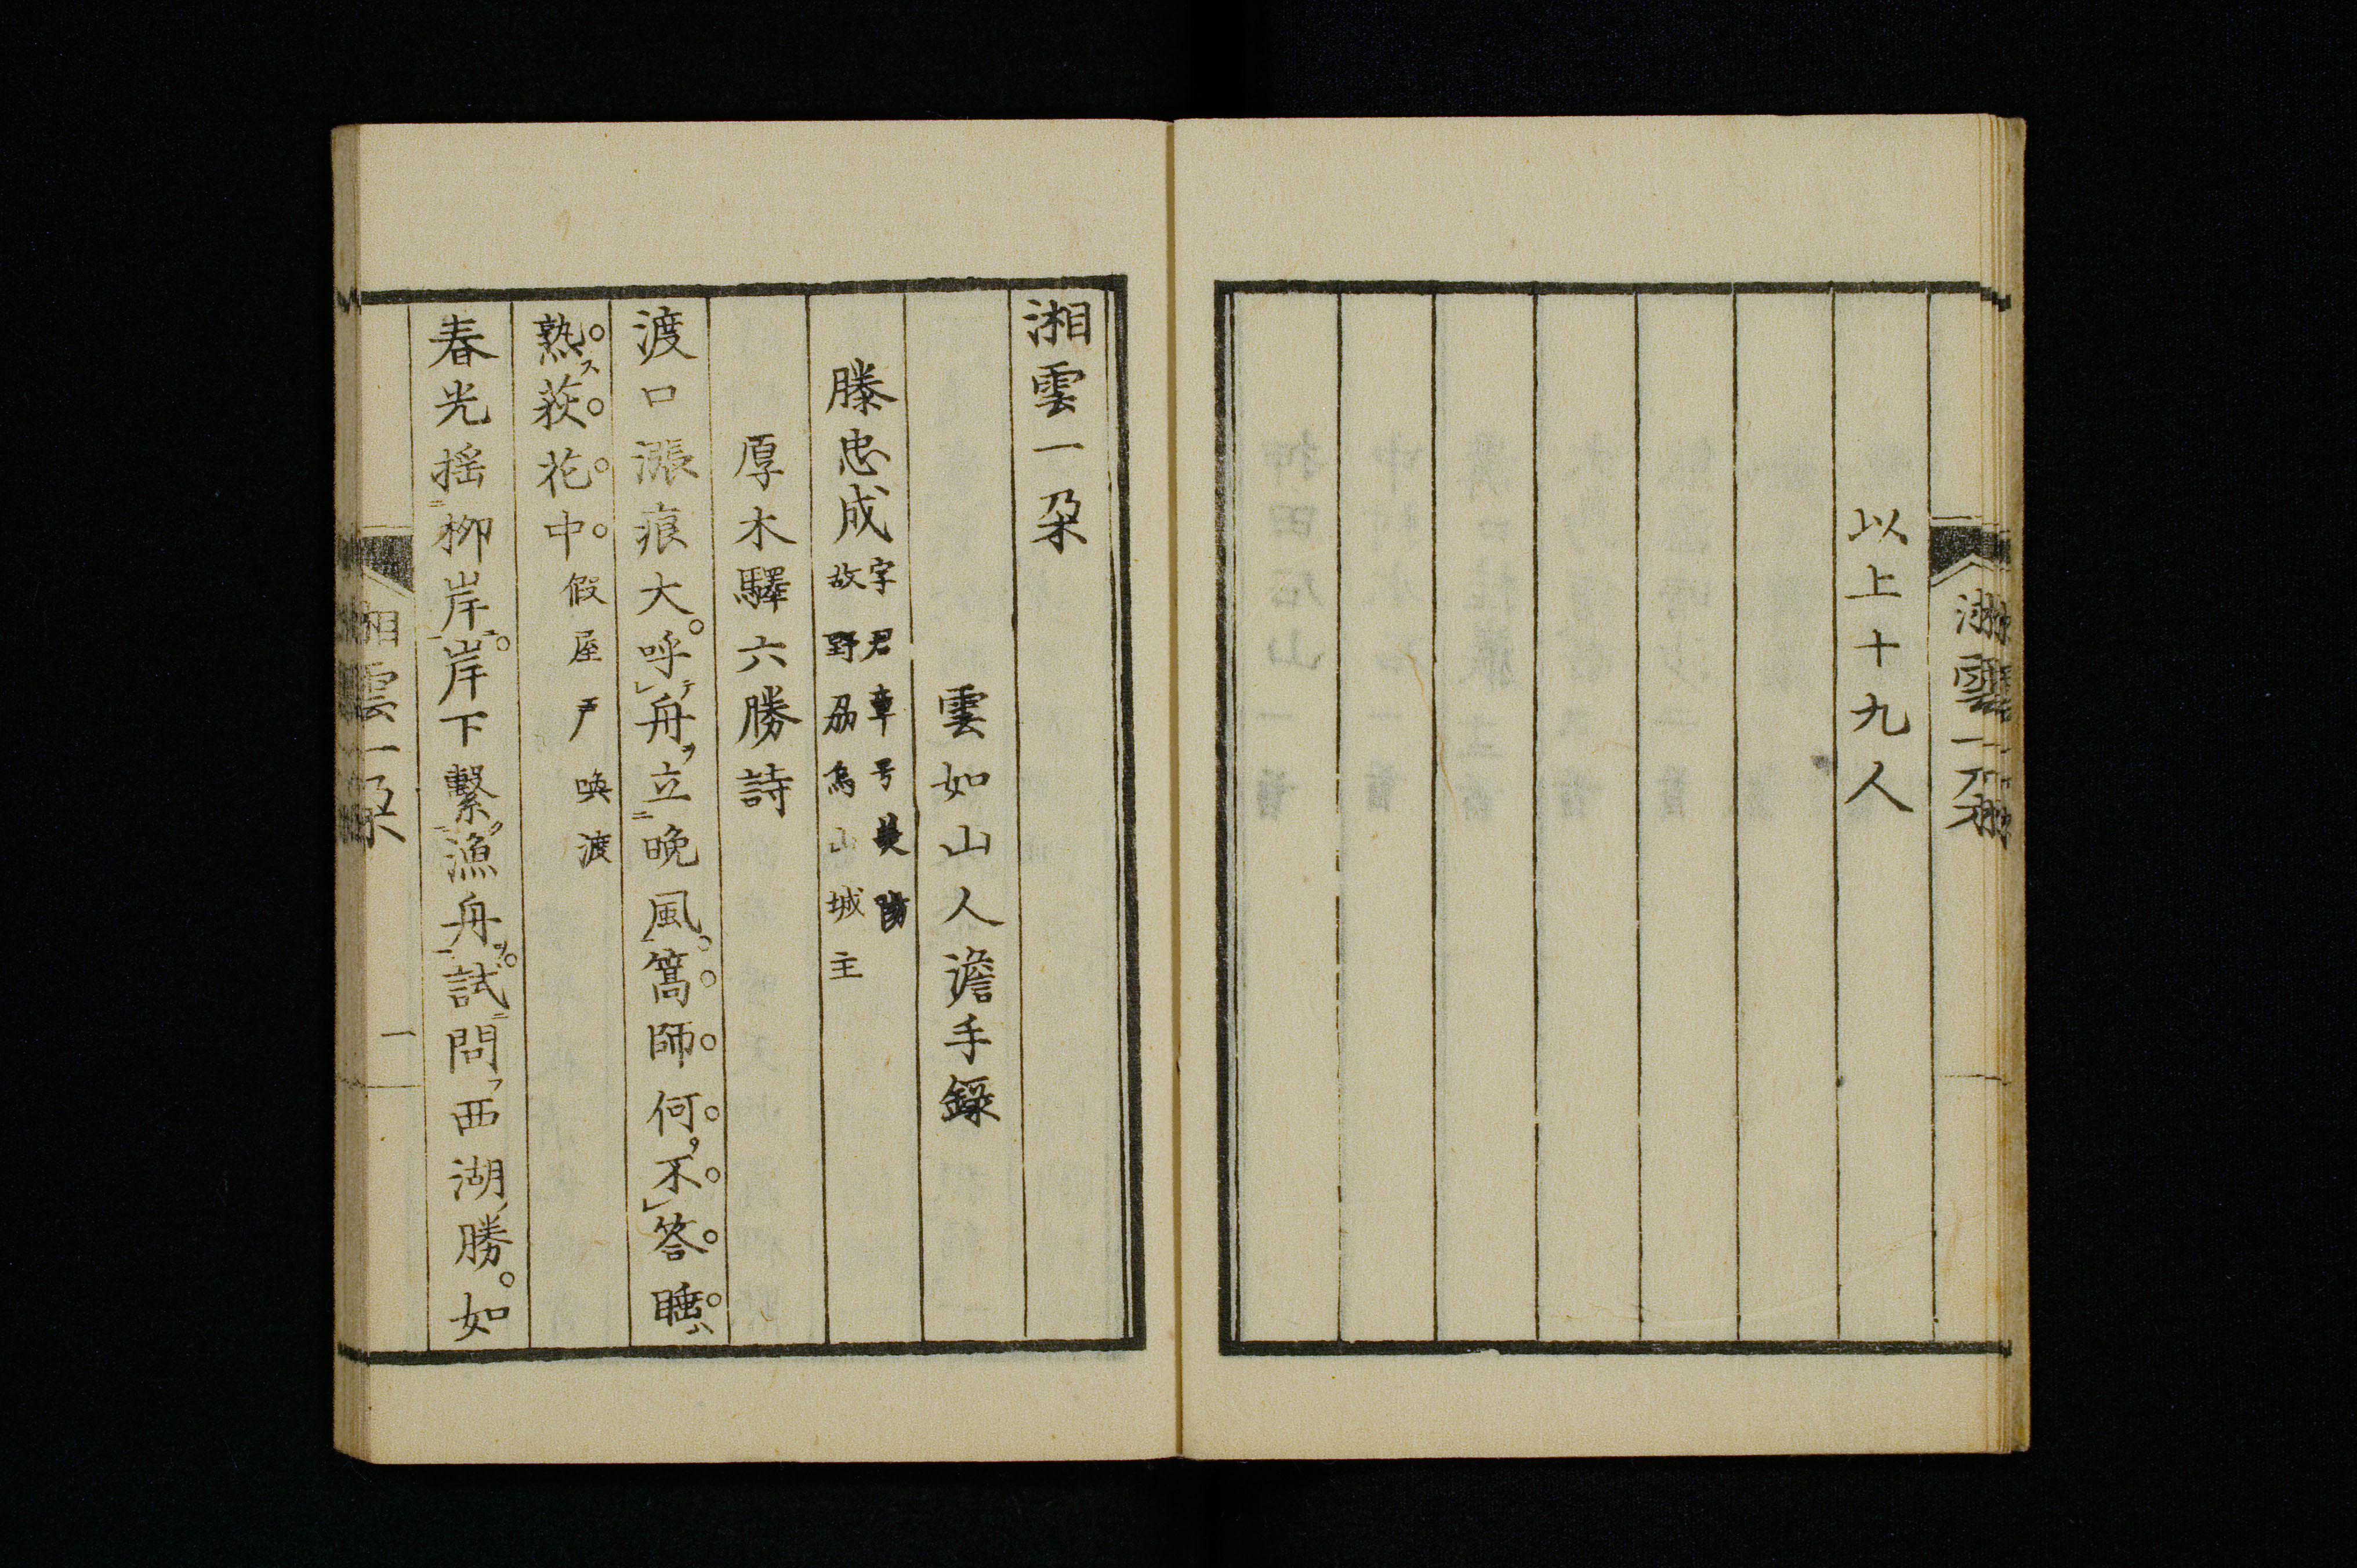 湘雲一朶
以上十九人
湘雲一朶
雲如山人澹手錄
滕忠成
字君章号美陵
故野刕烏山城主
厚木驛六勝詩
渡口漲痕大呼舟立晩風篙師何不答睡
熟荻花中 假屋戸喚渡
春光揺柳岸岸下繫漁舟試問西湖勝如
湘雲一朶
一